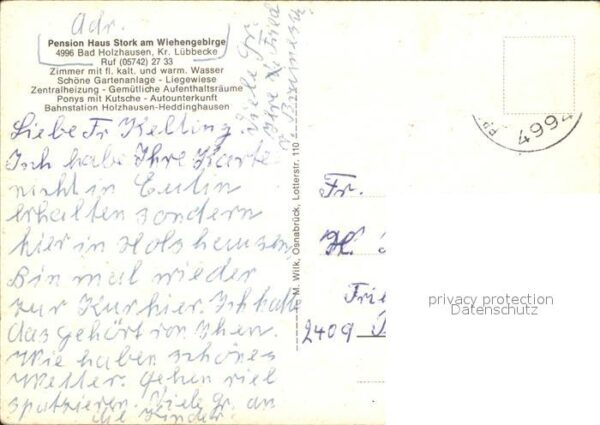 Adr.
Pension Haus Stork am Wiehengebirge
4996 Bad Holzhausen, Kr. Lübbecke
Ruf (05742) 27 33
Zimmer mit fl. kalt. und warm. Wasser
Schöne Gartenanlage - Liegewiese
Zentralheizung - Gemütliche Aufenthaltsräume
Ponys mit Kutsche - Autounterkunft
Bahnstation Holzhausen-Heddinghausen
Liebe Fr Kelting.
Ich habe Ihre Karte
nicht in Eutin
erhalten sondern
hier in Holzhausen,
Bin mal wieder
zur Kur hier. Ich hatte
das gehört von Ihnen.
Wie haben schönes
Wetter. Gehen viel
spatzieren. Viele Gr. an
die Kinder.
Viele Gr.
M. Wilk, Osnabrück, Lotterstr. 110
Fr.
H.
Frie
2409
4994
privacy protection
Datenschutz